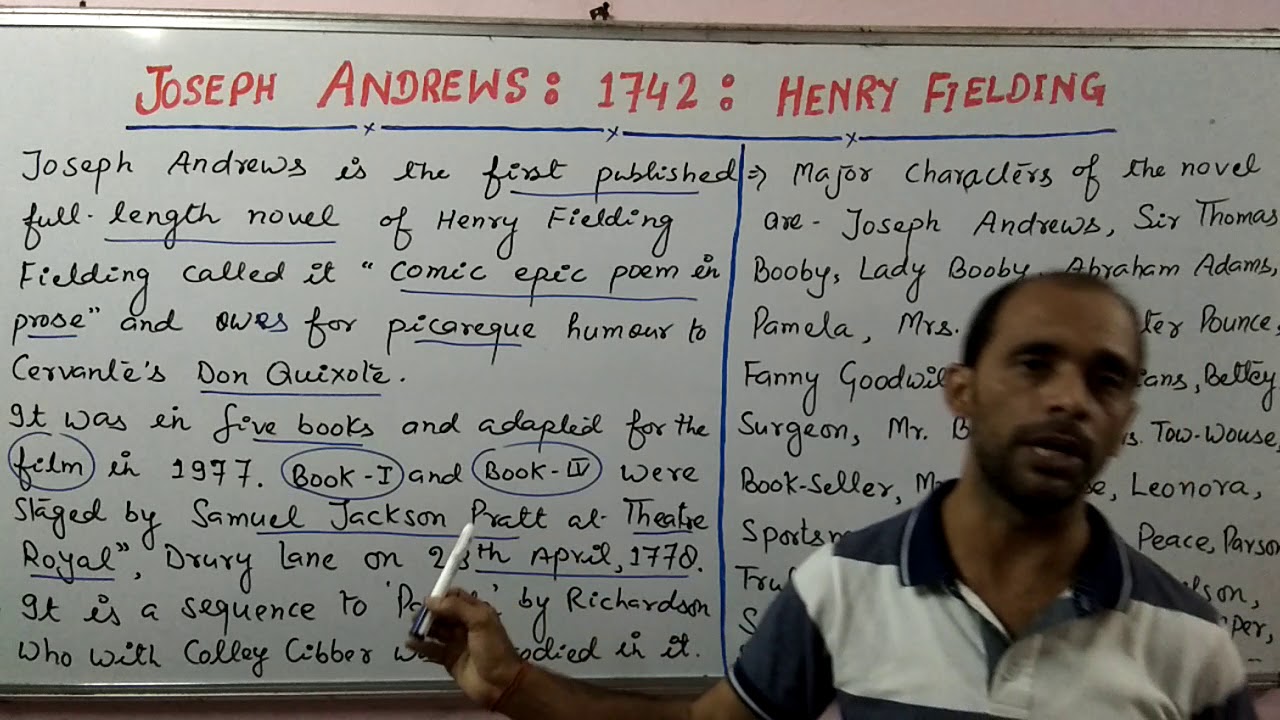 JOSEPH ANDREWS: 1742: HENRY FIELDING
Joseph Andrews is the first published
full-length novel of Henry Fielding
Fielding called it "comic epic poem in
prose" and owes for picareque humour to
Cervante's Don Quixote.
It was in five books and adapted for the
film in 1977. Book-I and Book-IV were
staged by Samuel Jackson Pratt at Theatre
Royal", Drury lane on 2 th April, 1778.
It is a sequence to by Richardson
who with Colley Cibber in it.
⇒ Major characters of the novel
are- Joseph Andrews, Sir Thomas
Booby, Lady Booby, Abraham Adams,
Pamela, Mrs. Pounce,
Fanny Bettey
Surgeon, Mr. Tow-Wouse,
Book-Seller, Leonora,
Peace, Parson